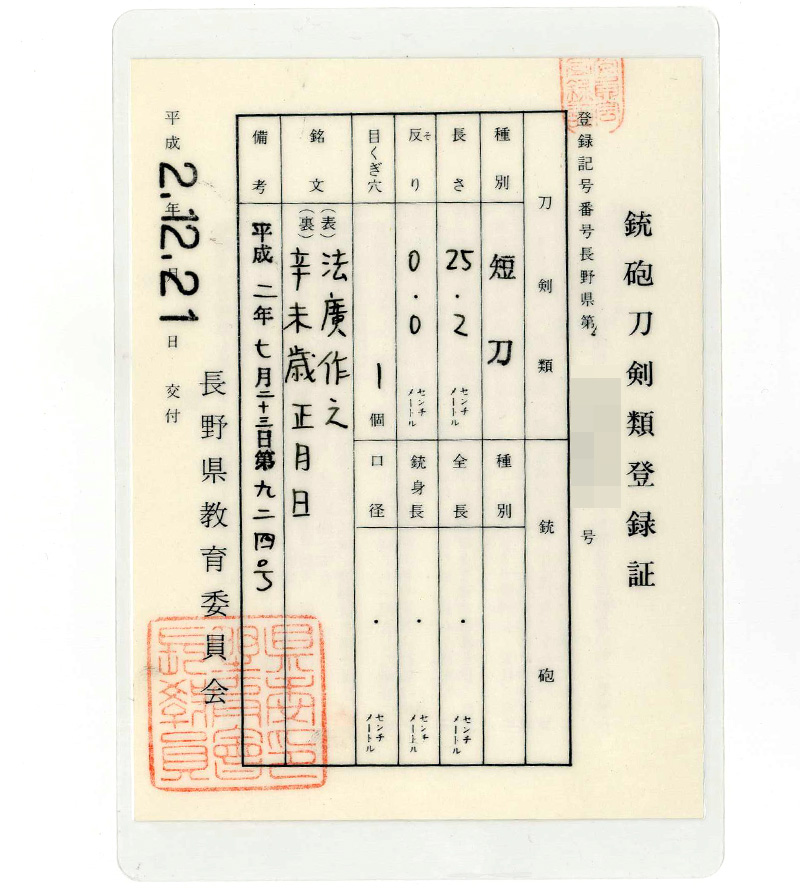 銃砲刀剣類登録証
登録記号番号長野県第 号
刀剣類
種別 短刀
長さ 25.2 センチメートル
反り そ 0.0 センチメートル
目くぎ穴 1個
銃砲
種別
全長 . センチメートル
銃身長 . センチメートル
口径 . センチメートル
銘文 (表) 法廣作之
(裏) 辛未歳正月日
備考 平成二年七月二十三日第九二四号
長野県教育委員会
平成 2.12.21 年月日交付